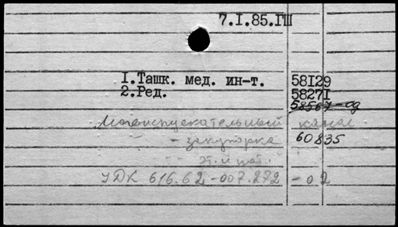 7.I.85.ГШ
I.Ташк. мед. ин-т. 58I29
2.Ред. 5827I
58567-од
Мочеиспускательный канал
- закупорка 60835
- эт. и пат.
УДК 616.62-007.272 -02